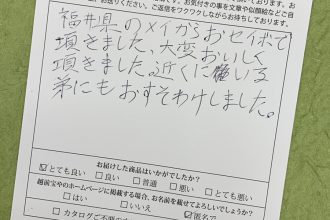 ご返信をワクワクしながらお待ちしております。
福井県のメイからおセイボで
頂きました、大変おいしく
頂きました。近くにいる
弟にもおすそわけしました。
お届けした商品はいかがでしたか?
☑とても良い □良い □普通 □悪い □とても悪い
越前宝やのホームページに掲載する場合、お名前を載せてよろしいでしょうか?
□はい □いいえ ☑匿名で
□カタログご不要の